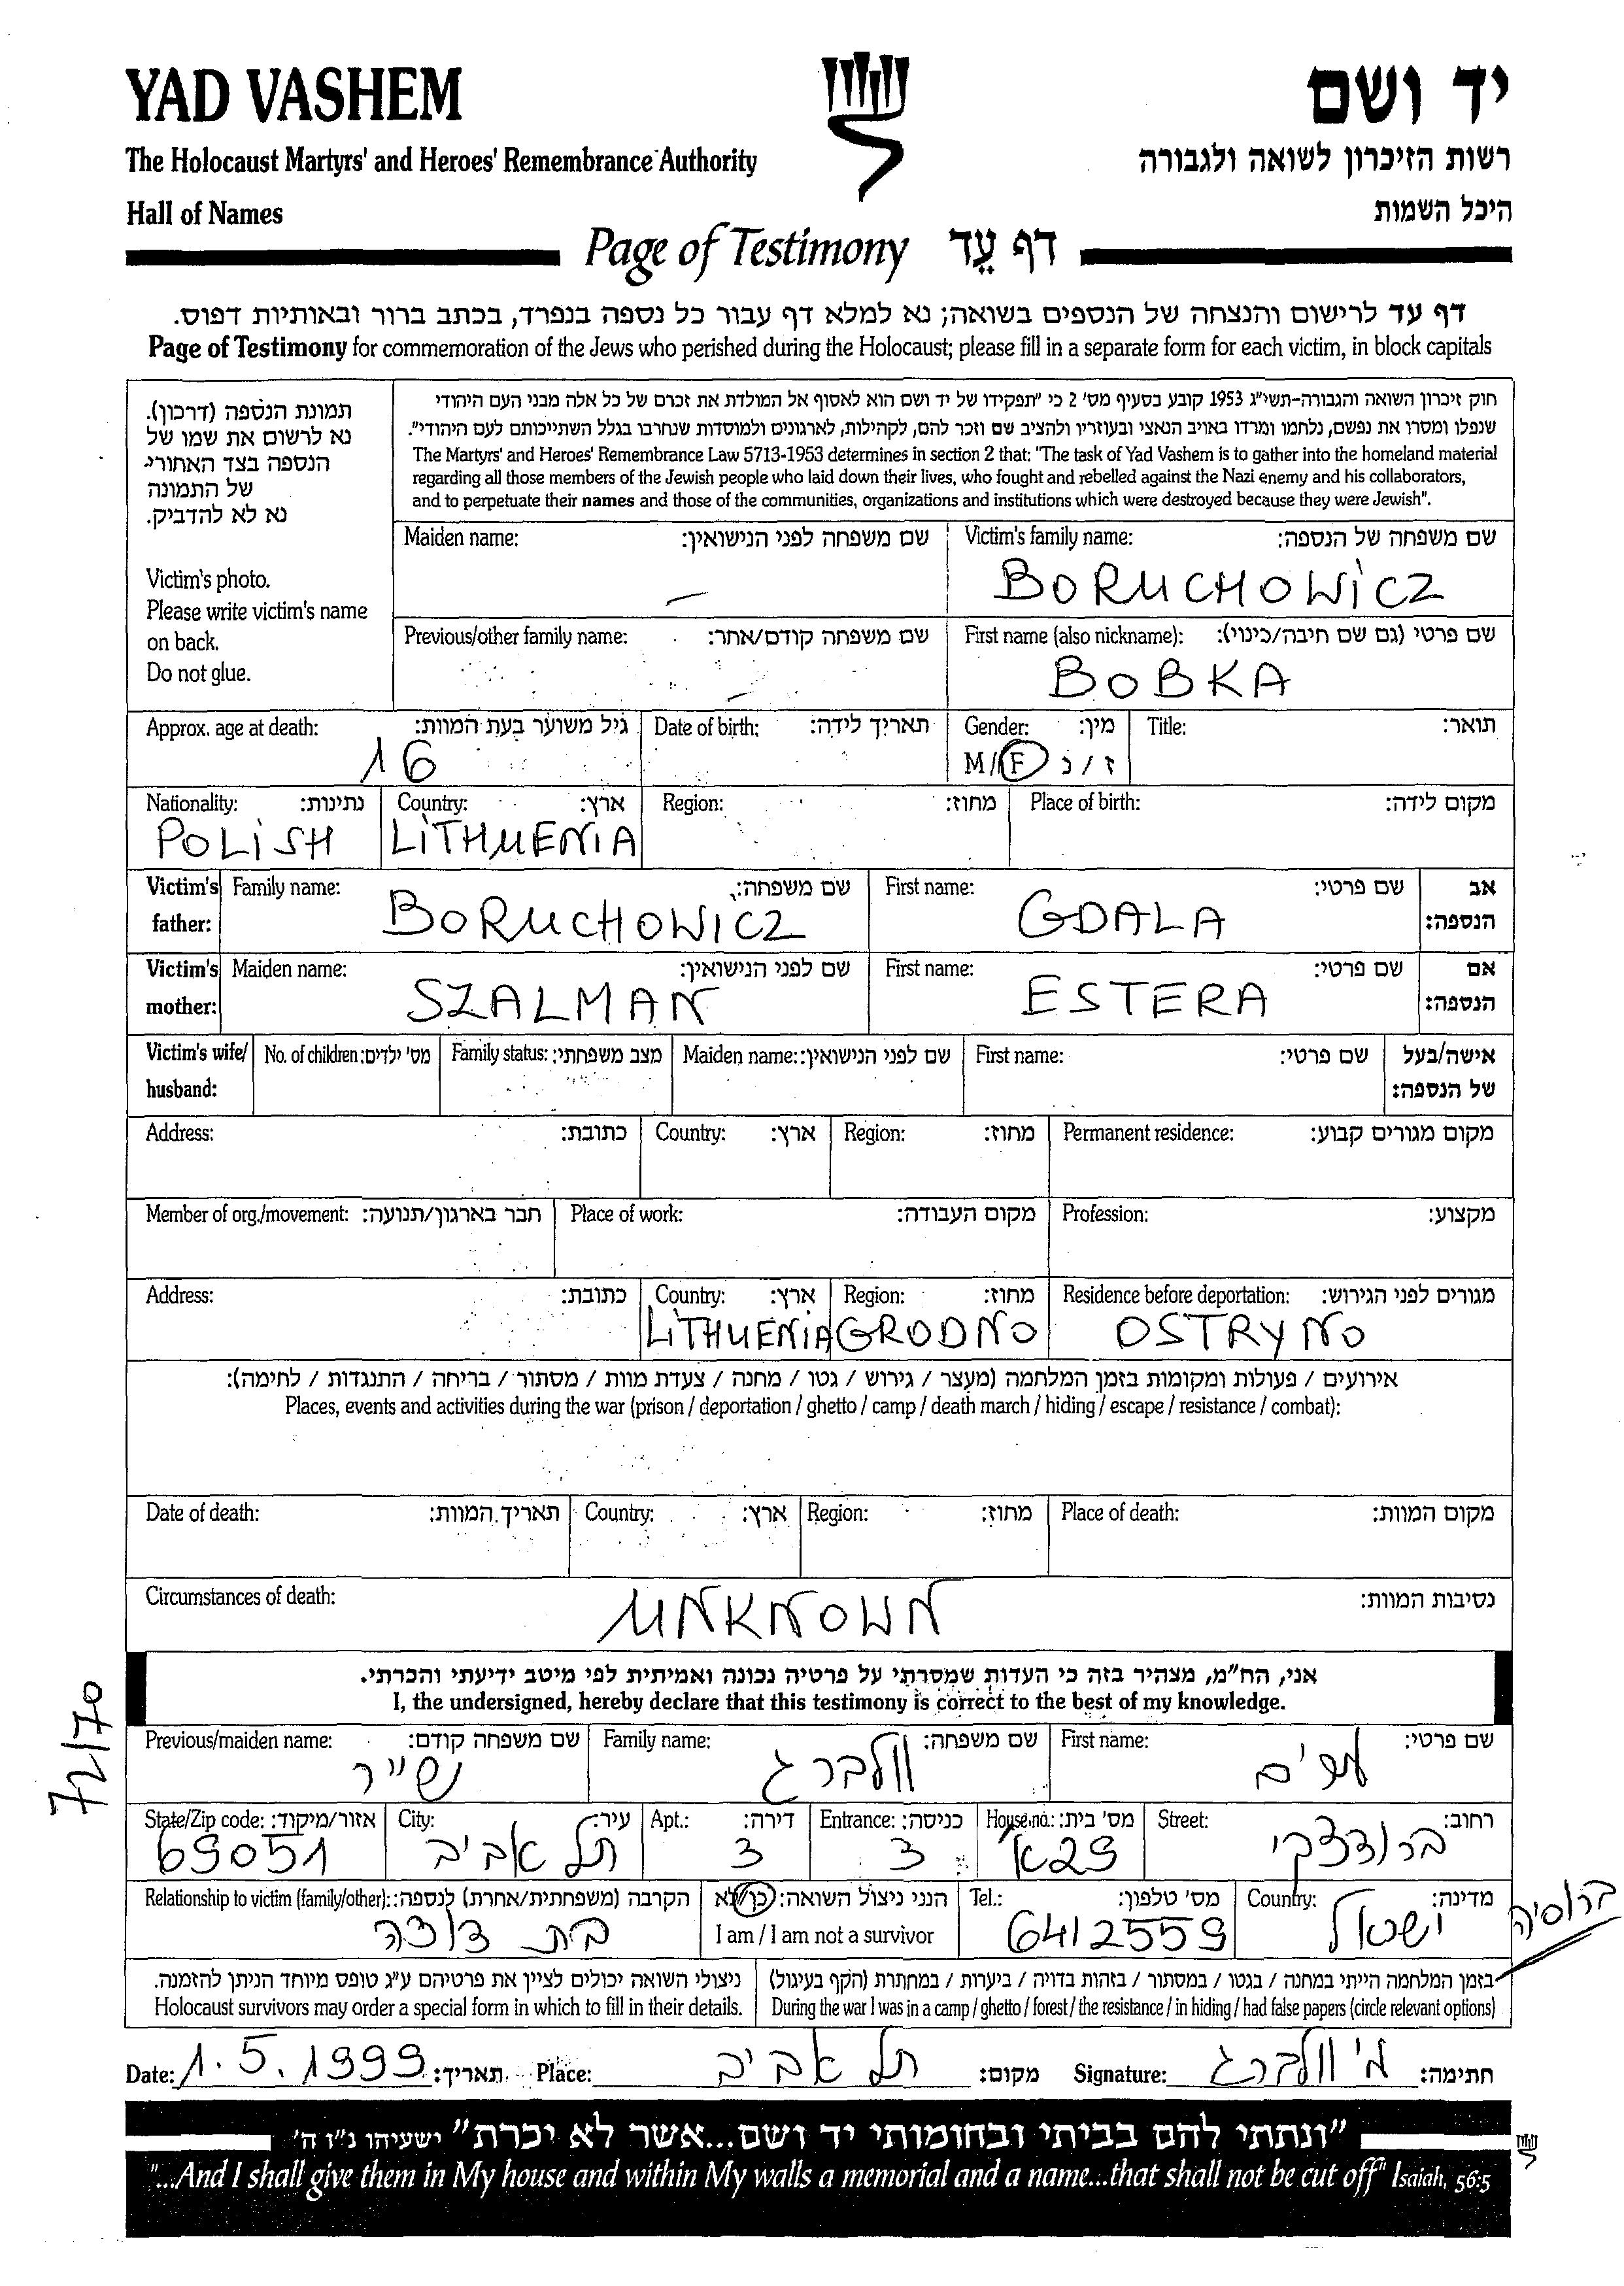 YAD VASHEM
יד ושם
The Holocaust Martyrs' and Heroes' Remembrance Authority
רשות הזיכרון לשואה ולגבורה
Hall of Names
היכל השמות
Page of Testimony דף עֵד
דף עד לרישום והנצחה של הנספים בשואה; נא למלא דף עבור כל נספה בנפרד, בכתב ברור ובאותיות דפוס.
Page of Testimony for commemoration of the Jews who perished during the Holocaust; please fill in a separate form for each victim, in block capitals
תמונת הנספה (דרכון).
נא לרשום את שמו של
הנספה בצד האחורי
של התמונה
נא לא להדביק.
Victim's photo.
Please write victim's name
on back.
Do not glue.
חוק זיכרון השואה והגבורה-תשי"ג 1953 קובע בסעיף מס' 2 כי "תפקידו של יד ושם הוא לאסוף אל המולדת את זכרם של כל אלה מבני העם היהודי
שנפלו ומסרו את נפשם, נלחמו ומרדו באויב הנאצי ובעוזריו ולהציב שם וזכר להם, לקהילות, לארגונים ולמוסדות שנחרבו בגלל השתייכותם לעם היהודי".
The Martyrs' and Heroes' Remembrance Law 5713-1953 determines in section 2 that: "The task of Yad Vashem is to gather into the homeland material
regarding all those members of the Jewish people who laid down their lives, who fought and rebelled against the Nazi enemy and his collaborators,
and to perpetuate their names and those of the communities, organizations and institutions which were destroyed because they were Jewish".
Maiden name: שם משפחה לפני הנישואין: Victim's family name: שם משפחה של הנספה:
– BORUCHOWICZ
Previous/other family name: שם משפחה קודם/אחר: First name (also nickname): שם פרטי (גם שם חיבה/כינוי):
– BOBKA
Approx. age at death: גיל משוער בעת המוות: Date of birth: תאריך לידה: Gender: מין: Title: תואר:
16 M/F ז/נ
Nationality: נתינות: Country: ארץ: Region: מחוז: Place of birth: מקום לידה:
POLISH LITHUENIA
Victim's Family name: שם משפחה: First name: שם פרטי: אב
father: BORUCHOWICZ GDALA הנספה:
Victim's Maiden name: שם לפני הנישואין: First name: שם פרטי: אם
mother: SZALMAN ESTERA הנספה:
Victim's wife/ No. of children: מס' ילדים: Family status: מצב משפחתי: Maiden name: שם לפני הנישואין: First name: שם פרטי: אישה/בעל
husband: של הנספה:
Address: כתובת: Country: ארץ: Region: מחוז: Permanent residence: מקום מגורים קבוע:
Member of org./movement: חבר בארגון/תנועה: Place of work: מקום העבודה: Profession: מקצוע:
Address: כתובת: Country: ארץ: Region: מחוז: Residence before deportation: מגורים לפני הגירוש:
LITHUENIA GRODNO OSTRYNO
אירועים / פעולות ומקומות בזמן המלחמה (מעצר / גירוש / גטו / מחנה / צעדת מוות / מסתור / בריחה / התנגדות / לחימה):
Places, events and activities during the war (prison / deportation / ghetto / camp / death march / hiding / escape / resistance / combat):
Date of death: תאריך המוות: Country: ארץ: Region: מחוז: Place of death: מקום המוות:
Circumstances of death: נסיבות המוות:
UNKNOWN
אני, הח"מ, מצהיר בזה כי העדות שמסרתי על פרטיה נכונה ואמיתית לפי מיטב ידיעתי והכרתי.
I, the undersigned, hereby declare that this testimony is correct to the best of my knowledge.
72/70
Previous/maiden name: שם משפחה קודם: Family name: שם משפחה: First name: שם פרטי:
נש"ר וולברג
State/Zip code: אזור/מיקוד: City: עיר: Apt.: דירה: Entrance: כניסה: House no.: מס' בית: Street: רחוב:
69051 תל אביב 3 3 29א ברודצקי
Relationship to victim (family/other): הקרבה (משפחתית/אחרת) לנספה: הנני ניצול השואה: כן/לא Tel.: מס' טלפון: Country: מדינה:
בת דודה I am / I am not a survivor 6412559 ישראל
ברוסיה
ניצולי השואה יכולים לציין את פרטיהם ע"ג טופס מיוחד הניתן להזמנה. בזמן המלחמה הייתי במחנה / בגטו / במסתור / בזהות בדויה / ביערות / במחתרת (הקף בעיגול)
Holocaust survivors may order a special form in which to fill in their details. During the war I was in a camp / ghetto / forest / the resistance / in hiding / had false papers (circle relevant options)
Date: 1.5.1999 תאריך: Place: תל אביב מקום: Signature: מ' וולברג חתימה:
"ונתתי להם בביתי ובחומותי יד ושם...אשר לא יכרת" ישעיהו נ"ו ה'
"...And I shall give them in My house and within My walls a memorial and a name...that shall not be cut off" Isaiah, 56:5